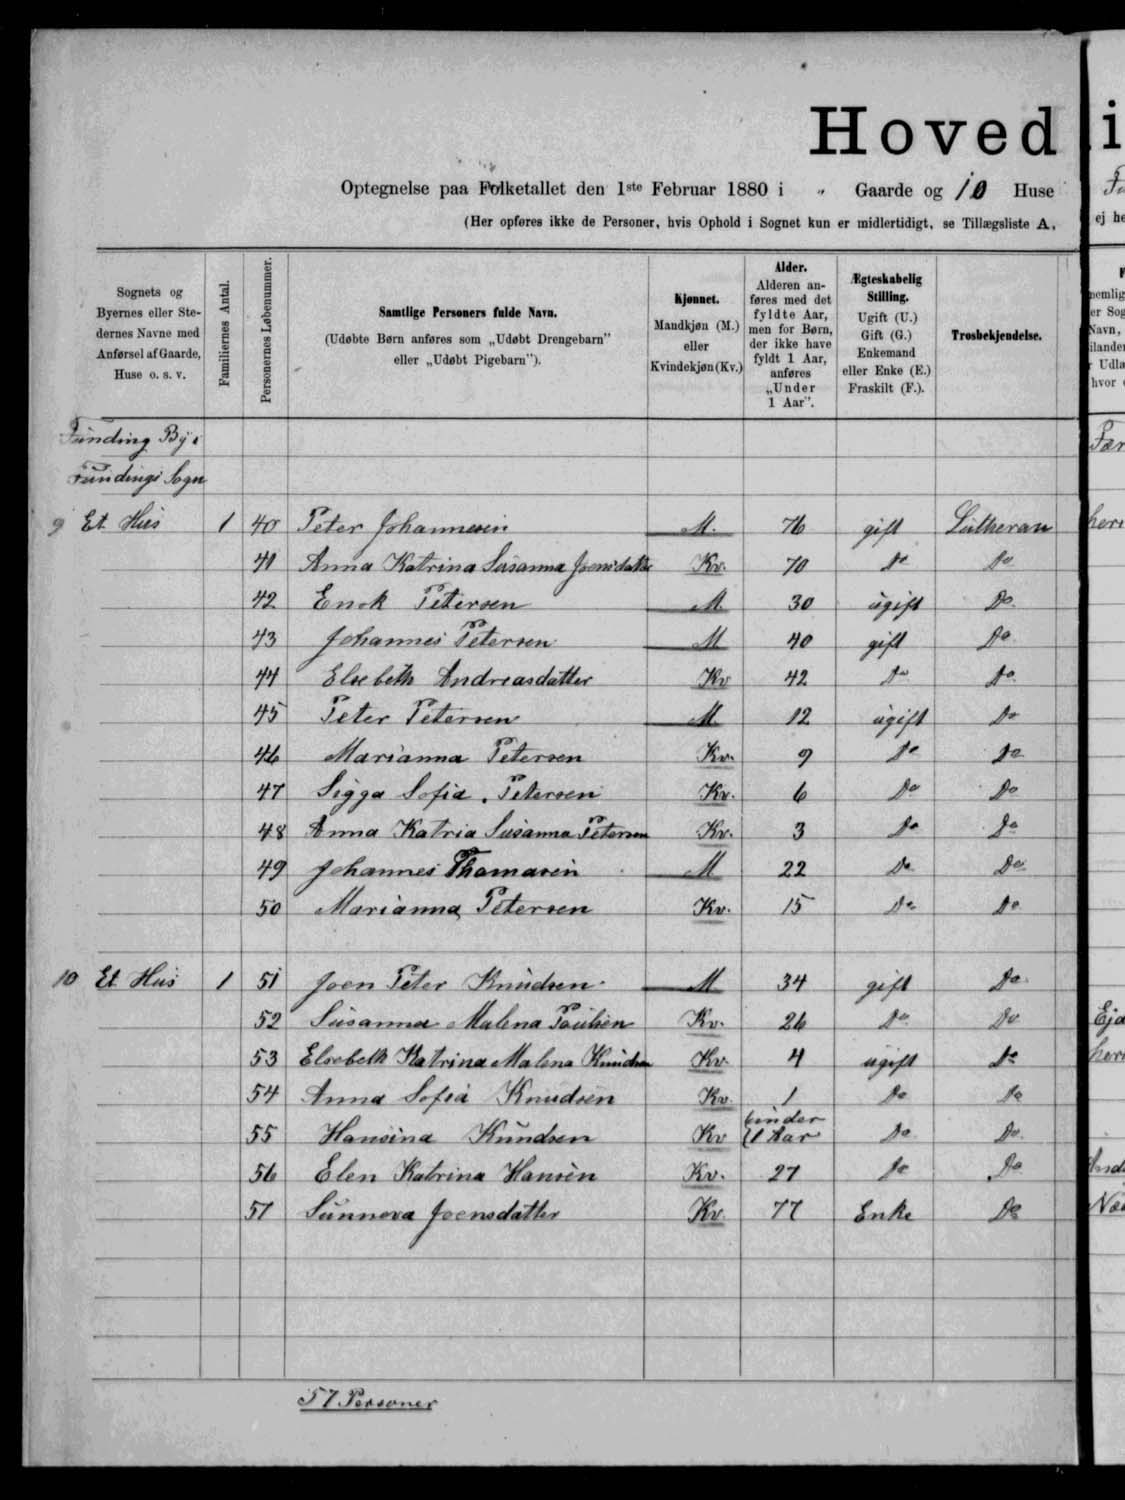 Hoved
Optegnelse paa Folketallet den 1ste Februar 1880 i " Gaarde og 10 Huse
(Her opføres ikke de Personer, hvis Ophold i Sognet kun er midlertidigt, se Tillægsliste A.
Sognets og Byernes eller Stedernes Navne med Anførsel af Gaarde, Huse o. s. v.
Familiernes Antal.
Personernes Løbenummer.
Samtlige Personers fulde Navn.
(Udøbte Børn anføres som „Udøbt Drengebarn" eller „Udøbt Pigebarn").
Kjønnet.
Mandkjøn (M.) eller Kvindekjøn (Kv.)
Alder.
Alderen anføres med det fyldte Aar, men for Børn, der ikke have fyldt 1 Aar, anføres „Under 1 Aar".
Ægteskabelig Stilling.
Ugift (U.) Gift (G.) Enkemand eller Enke (E.) Fraskilt (F.).
Trosbekjendelse.
Funding By i
Fundings Sogn
9 Et Hus 1 40 Peter Johannesen M. 76 gift Lutheran
41 Anna Katrina Susanna Joensdatter Kv. 70 Do Do
42 Enok Petersen M. 30 ugift Do
43 Johannes Petersen M 40 gift Do
44 Elsebeth Andreasdatter Kv 42 Do Do
45 Peter Petersen M 12 ugift Do
46 Marianna Petersen Kv. 9 Do Do
47 Sigga Sofia Petersen Kv. 6 Do Do
48 Anna Katria Susanna Petersen Kv. 3 Do Do
49 Johannes Thomasen M 22 Do Do
50 Marianna Petersen Kv. 15 Do Do
10 Et Hus 1 51 Joen Peter Knudsen M 34 gift Do
52 Susanna Malena Poulsen Kv. 26 Do Do
53 Elsebeth Katrina Malena Knudsen Kv. 4 ugift Do
54 Anna Sofia Knudsen Kv. 1 Do Do
55 Hansina Knudsen Kv under 1 Aar Do Do
56 Elen Katrina Hansen Kv. 27 Do Do
57 Sunneva Joensdatter Kv. 77 Enke Do
57 Personer